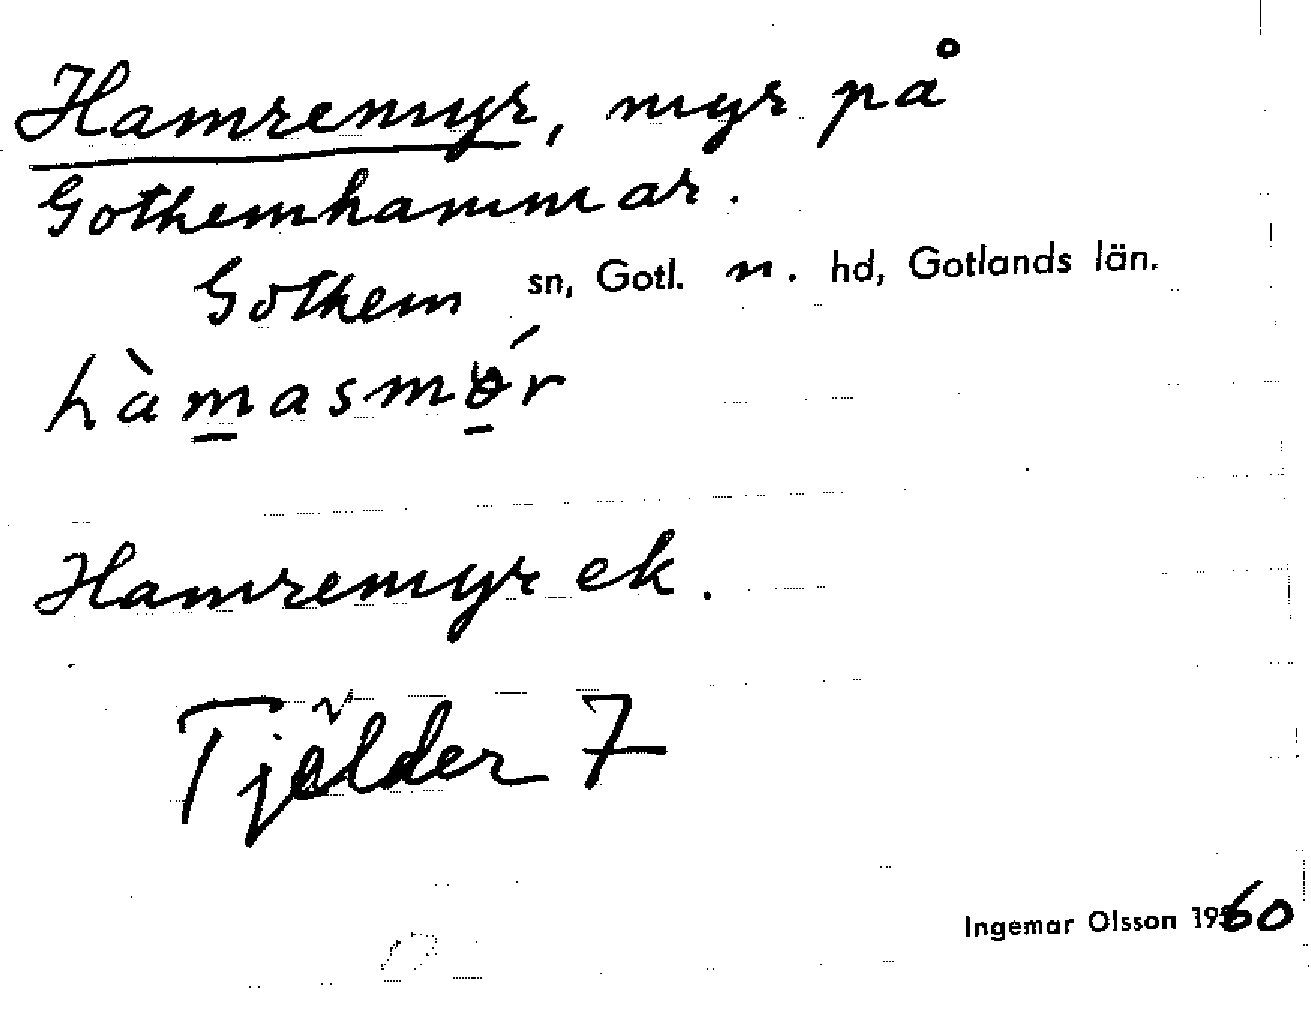 Hamremyr, myr på
Gothemhammar.
Gothem sn, Gotl. n. hd, Gotlands län.
hàmasmǿr
Hamremyr ek.
Tjelder 7
Ingemar Olsson 1960